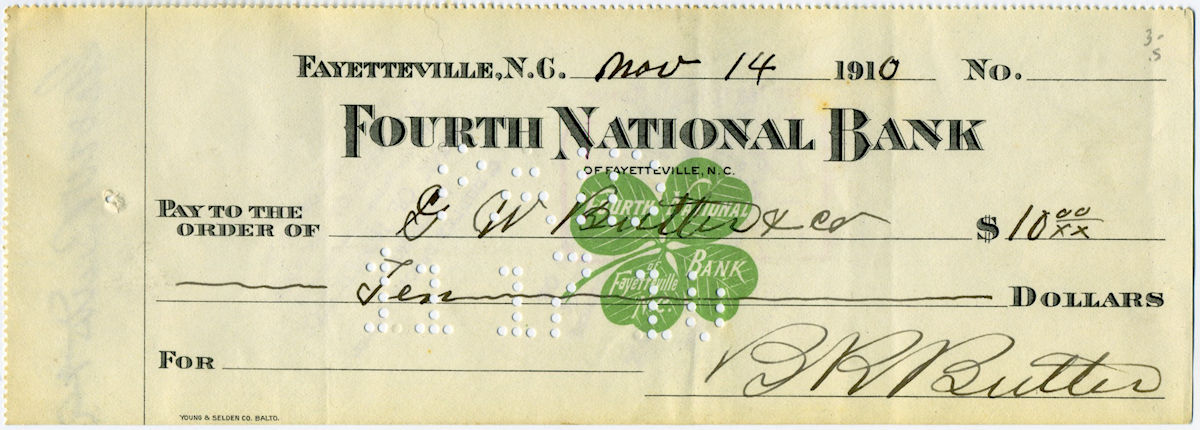 3-
5
FAYETTEVILLE, N.C. Nov 14 1910 No.
FOURTH NATIONAL BANK
OF FAYETTEVILLE, N.C.
FOURTH NATIONAL
PAY TO THE
ORDER OF G W Butter & Co $ 10 00/xx
BANK
of
Fayetteville
N.C.
Ten DOLLARS
FOR B R Butter
YOUNG & SELDEN CO. BALTO.